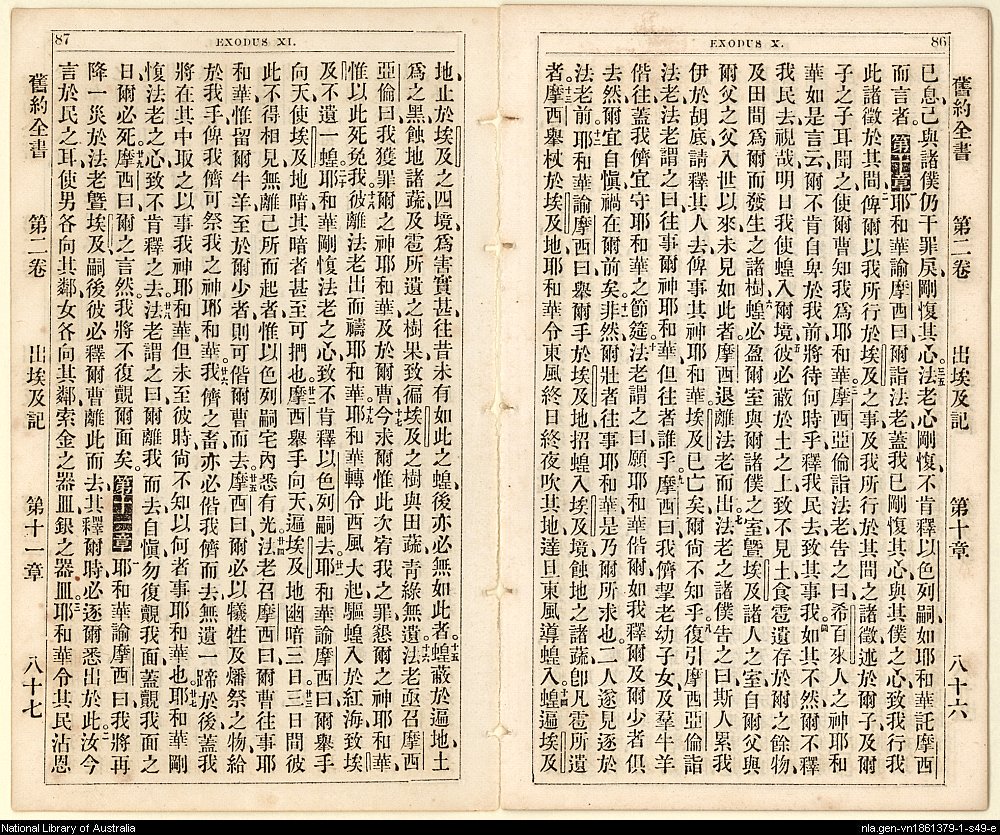 86
EXODUS X.
舊約全書 第二卷 出埃及記 第十章 八十六
已息己與諸僕仍干罪戾剛愎其心、三五法老心剛愎、不肯釋以色列嗣、如耶和華託摩西
而言者。第十章一耶和華諭摩西曰、爾詣法老、蓋我已剛愎其心、與其僕之心、致我行我
此諸徵於其間、二俾爾以我所行於埃及之事、及我所行於其間之諸徵、述於爾子及爾
子之子耳聞之、使爾曹知我爲耶和華。三摩西亞倫詣法老告之曰、希百來人之神耶和
華如是言云、爾不肯自卑於我前、將待何時乎、釋我民去、致其事我、四如其不然、爾不釋
我民去、視哉明日我使蝗入爾境、五彼必蔽於土之上、致不見土、食雹遺存於爾之餘物、
及田間爲爾而發生之諸樹、六蝗必盈爾室、與爾諸僕之室、曁埃及諸人之室、自爾父與
爾父之父入世以來、未見如此者、摩西退離法老而出。七法老之諸僕告之曰、斯人累我
伊於胡底、請釋其人去、俾事其神耶和華、埃及已亡矣、爾尚不知乎。八復引摩西亞倫詣
法老、法老謂之曰、往事爾神耶和華、但往者誰乎。九摩西曰、我儕挈老幼子女、及羣牛羊
偕往、蓋我儕宜守耶和華之節筵。十法老謂之曰、願耶和華偕爾、如我釋爾及爾少者俱
去、然爾宜自愼、禍在爾前矣。十一非然、爾壯者往事耶和華、是乃爾所求也、二人遂見逐於
法老前。十二耶和華諭摩西曰、舉爾手於埃及地、招蝗入埃及境、蝕地之諸蔬、卽凡雹所遺
者。十三摩西舉杖於埃及地、耶和華令東風終日終夜吹其地、達旦東風導蝗入、十四蝗遍埃及
87
EXODUS XI.
舊約全書 第二卷 出埃及記 第十一章 八十七
地、止於埃及之四境、爲害實甚、往昔未有如此之蝗、後亦必無如此者。十五蝗蔽於遍地、土
爲之黑、蝕地諸蔬、及雹所遺之樹果、致徧埃及之樹、與田蔬、青綠無遺。十六法老亟召摩西
亞倫曰、我獲罪爾之神耶和華、及於爾曹、十七今求爾惟此次宥我之罪、懇爾之神耶和華、
惟以此死免我。十八彼離法老出而禱耶和華、十九耶和華轉令西風大起、驅蝗入於紅海、致埃
及不遺一蝗。二十耶和華剛愎法老之心、致不肯釋以色列嗣去。廿一耶和華諭摩西曰、爾舉手
向天、使埃及地暗、其暗者甚至可捫也。廿二摩西舉手向天、遍埃及地幽暗三日、廿三三日間彼
此不得相見、無離己所而起者、惟以色列嗣宅內悉有光。廿四法老召摩西曰、爾曹往事耶
和華、惟留爾牛羊、至於爾少者、則可偕爾曹而去。廿五摩西曰、爾必以犧牲及燔祭之物、給
於我手、俾我儕可祭我之神耶和華。廿六我儕之畜、亦必偕我儕而去、無遺一蹄於後、蓋我
將在其中取之、以事我神耶和華、但未至彼時、尙不知以何者事耶和華也。廿七耶和華剛
愎法老之心、致不肯釋之去。廿八法老謂之曰、爾離我而去、自愼勿復覿我面、蓋覿我面之
日、爾必死。廿九摩西曰、爾之言然、我將不復覿爾面矣。第十一章一耶和華諭摩西曰、我將再
降一災於法老曁埃及、嗣後彼必釋爾曹離此而去、其釋爾時、必逐爾悉出於此。二汝今
言於民之耳、使男各向其鄰、女各向其鄰、索金之器皿、銀之器皿。三耶和華令其民沾恩
National Library of Australia
nla.gen-vn1861379-1-s49-e